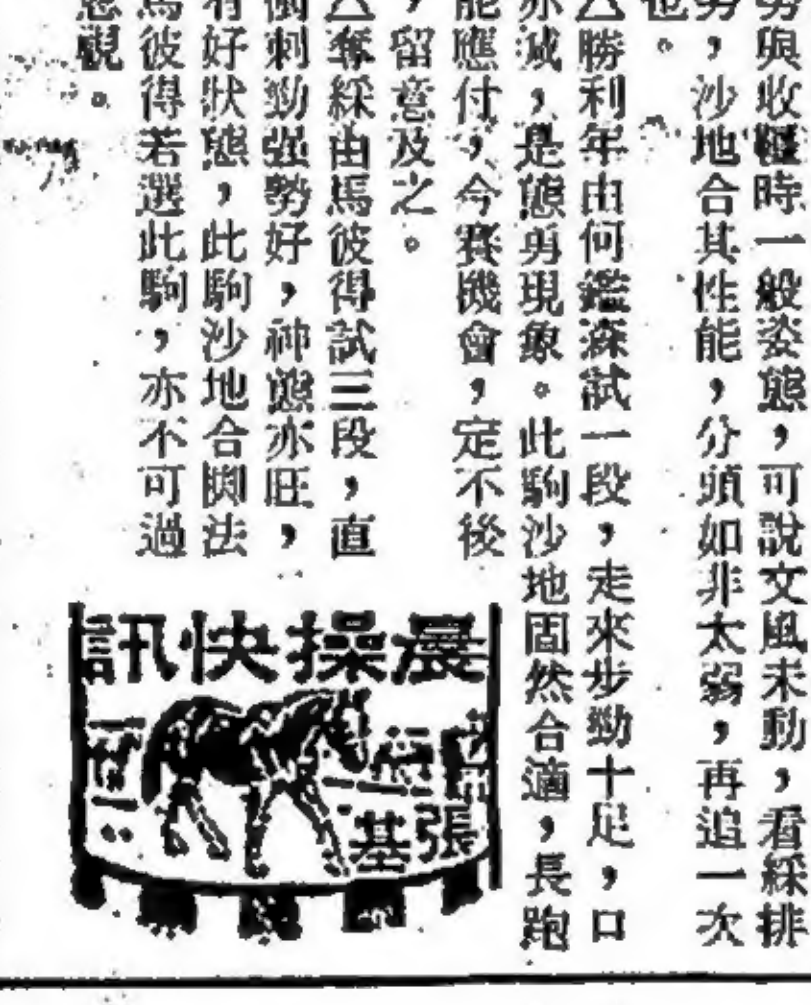 勇與收韁時一般姿態，可說文風未動，看綵排
勇，沙地合其性能，分頭如非太弱，再追一次
也。
△勝利年由何鑑滌試一段，走來步勁十足，口
亦减，是態勇現象。此駒沙地固然合適，長跑
能應付，今賽機會，定不後
，留意及之。
△奪綵由馬彼得試三段，直
衝刺勁强勢好，神態亦旺，
有好狀態，此駒沙地合脚法
馬彼得若選此駒，亦不可過
忽視。
晨操快訊
張基